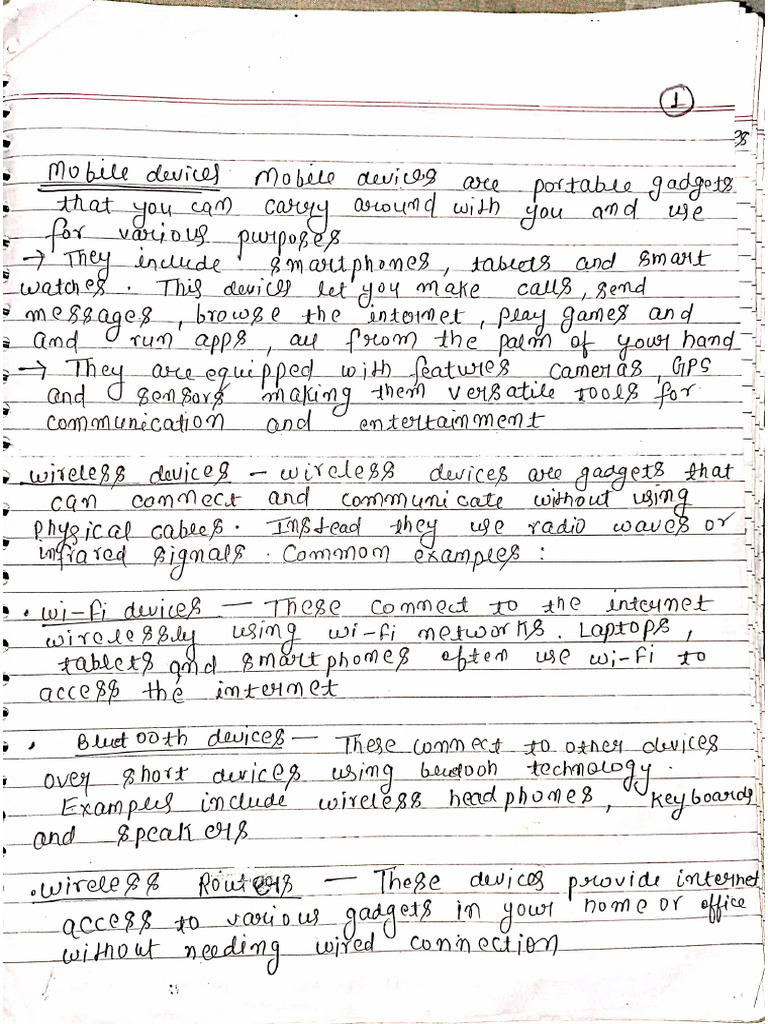 1
Mobile devices Mobile devices are portable gadgets
that you can carry around with you and use
for various purposes
→ They include smartphones, tablets and smart
watches. This devices let you make calls, send
messages, browse the internet, play games and
and run apps, all from the palm of your hand
→ They are equipped with features cameras, GPS
and sensors making them versatile tools for
communication and entertainment
wireless devices - wireless devices are gadgets that
can connect and communicate without using
physical cables. Instead they use radio waves or
infrared signals. Common examples :
• wi-fi devices — These connect to the internet
wirelessly using wi-fi networks. Laptops,
tablets and smartphones often use wi-fi to
access the internet
• Bluetooth devices — These connect to other devices
over short devices using technology.
Examples include wireless headphones, keyboards
and speakers
• wireless Routers — These devices provide internet
access to various gadgets in your home or office
without needing wired connection